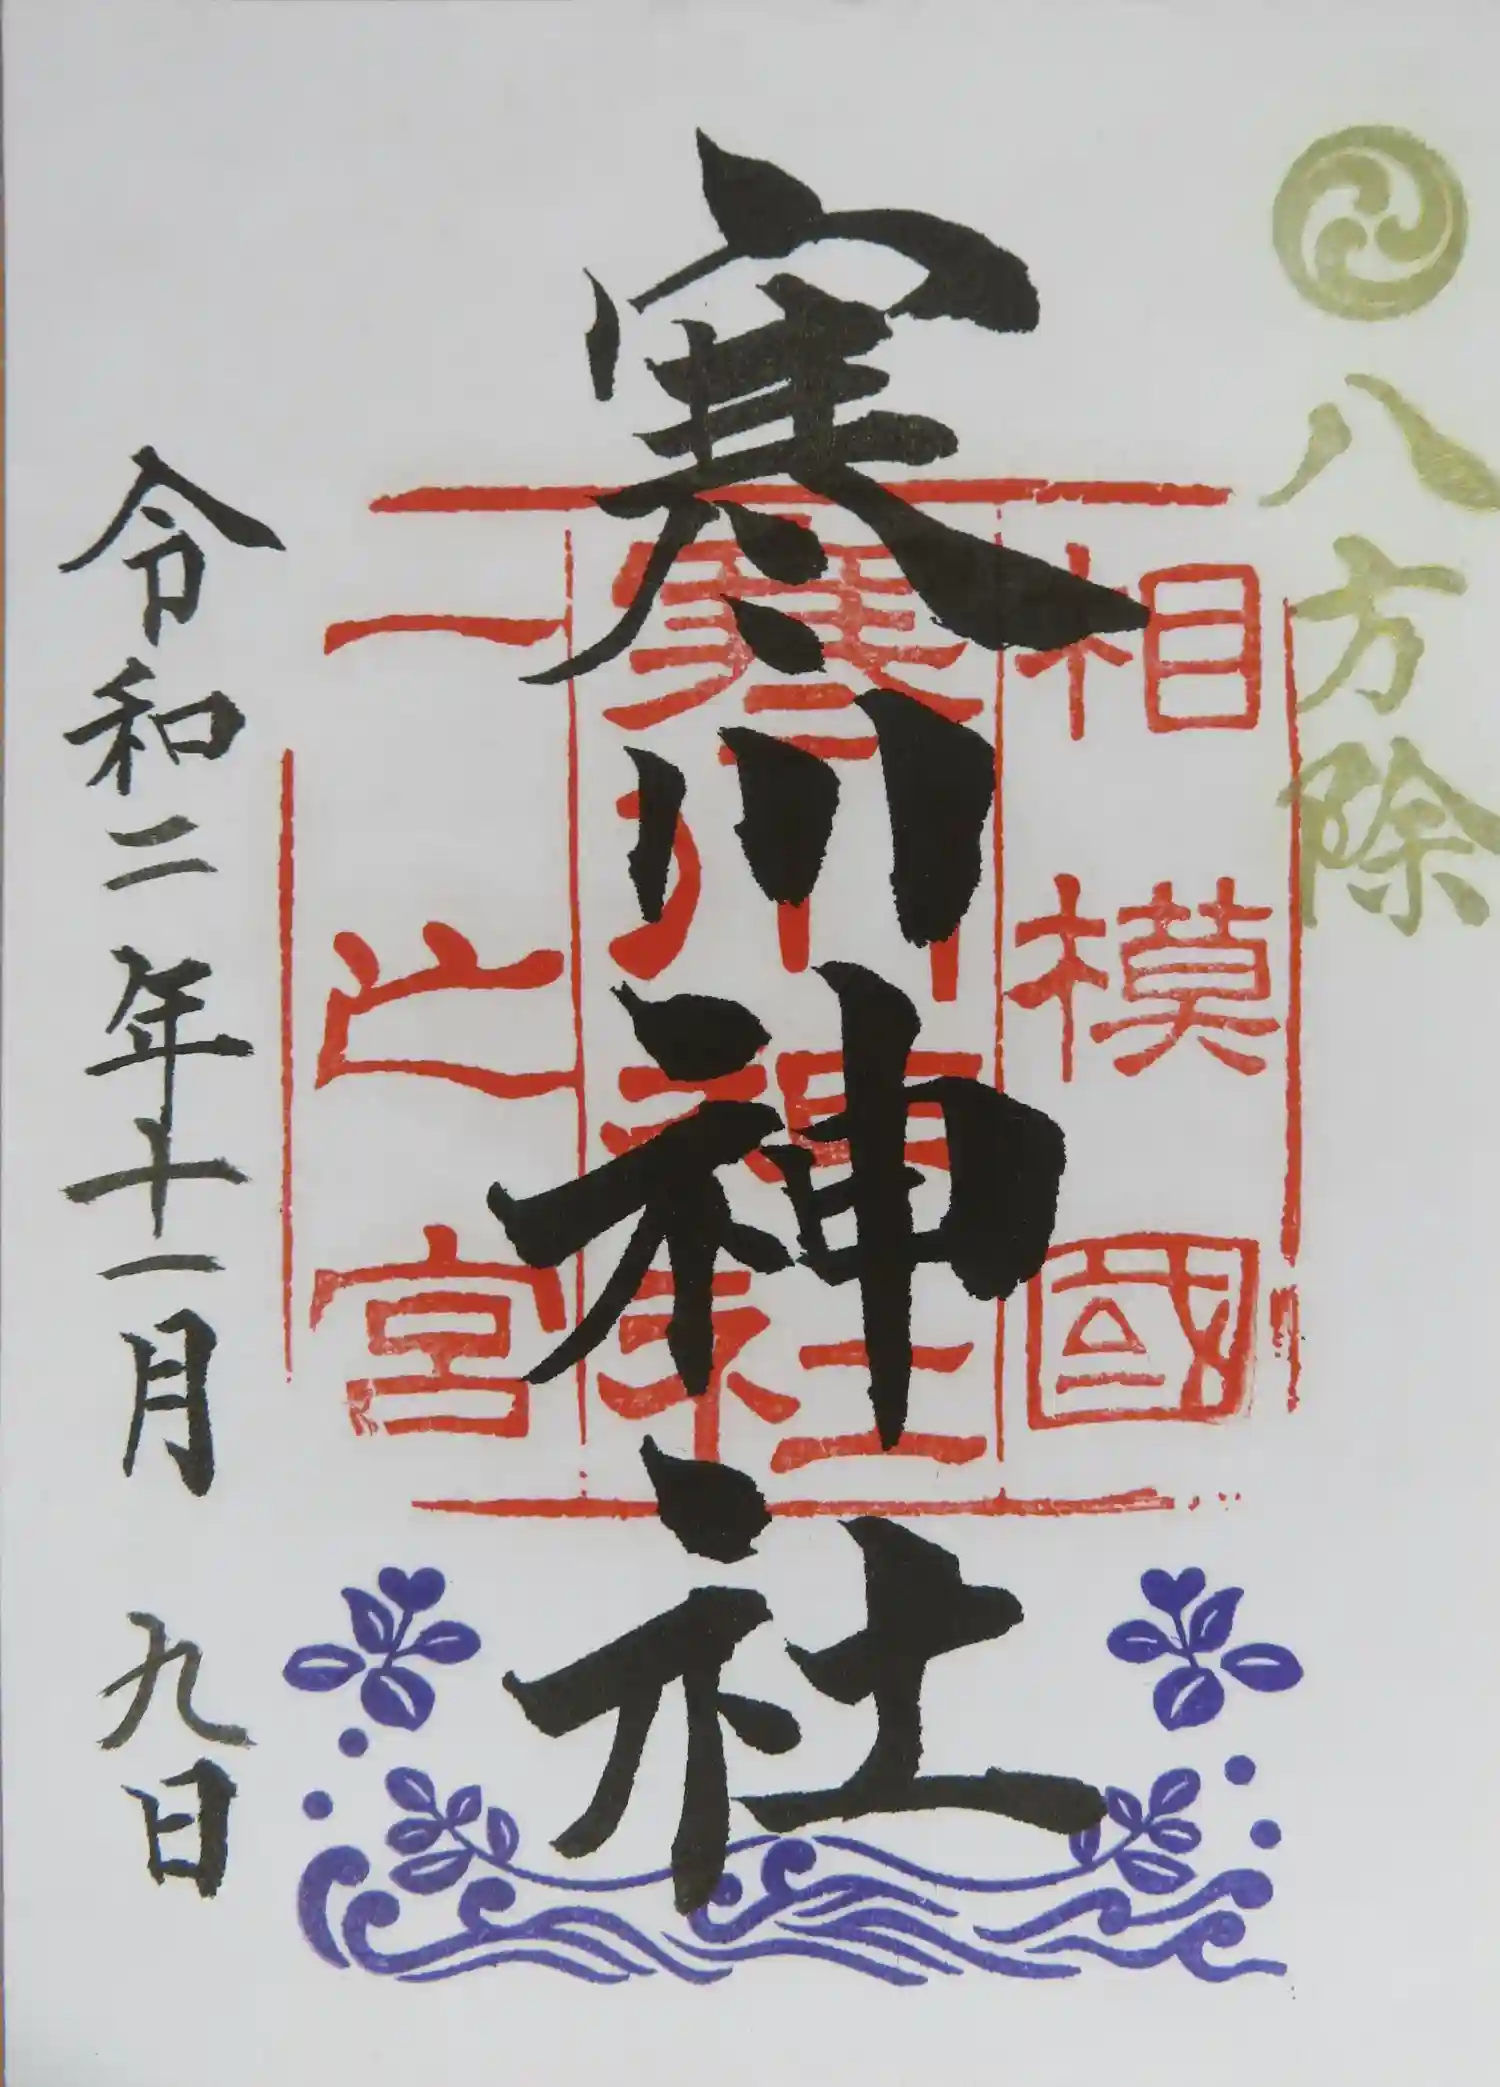 八方除
寒川神社
相模國
寒川神社
一之宮
令和二年十一月九日